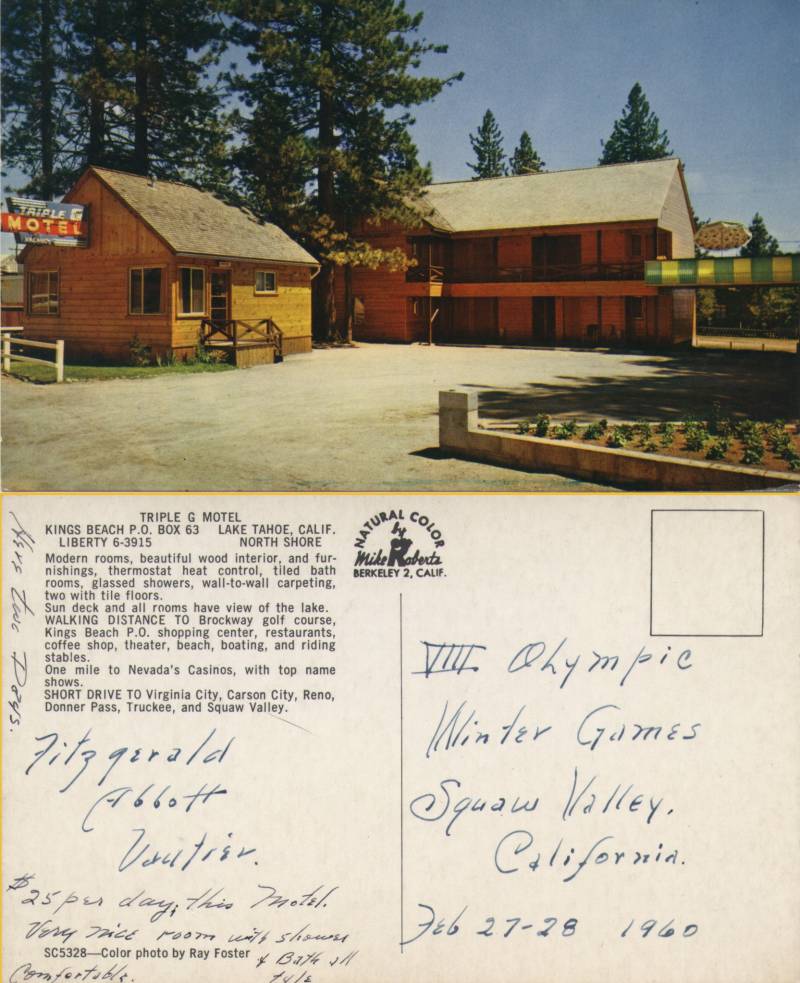 TRIPLE G
MOTEL
VACANCY
TRIPLE G MOTEL
KINGS BEACH P.O. BOX 63 LAKE TAHOE, CALIF.
LIBERTY 6-3915 NORTH SHORE
Modern rooms, beautiful wood interior, and fur-
nishings, thermostat heat control, tiled bath
rooms, glassed showers, wall-to-wall carpeting,
two with tile floors.
Sun deck and all rooms have view of the lake.
WALKING DISTANCE TO Brockway golf course,
Kings Beach P.O. shopping center, restaurants,
coffee shop, theater, beach, boating, and riding
stables.
One mile to Nevada's Casinos, with top name
shows.
SHORT DRIVE TO Virginia City, Carson City, Reno,
Donner Pass, Truckee, and Squaw Valley.
Here two Days.
Fitzgerald
Abbott
Vautier.
$25 per day, this Motel.
Very nice room with shower
& Bath all
tyle
Comfortable.
SC5328—Color photo by Ray Foster
NATURAL COLOR
by
Mike Roberts
BERKELEY 2, CALIF.
VIII Olympic
Winter Games
Squaw Valley,
California.
Feb 27-28 1960